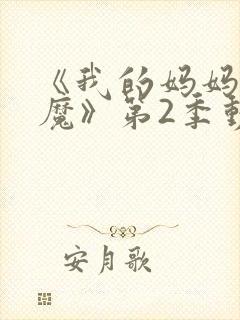 《我的妈妈
魔》第2季
安月歌